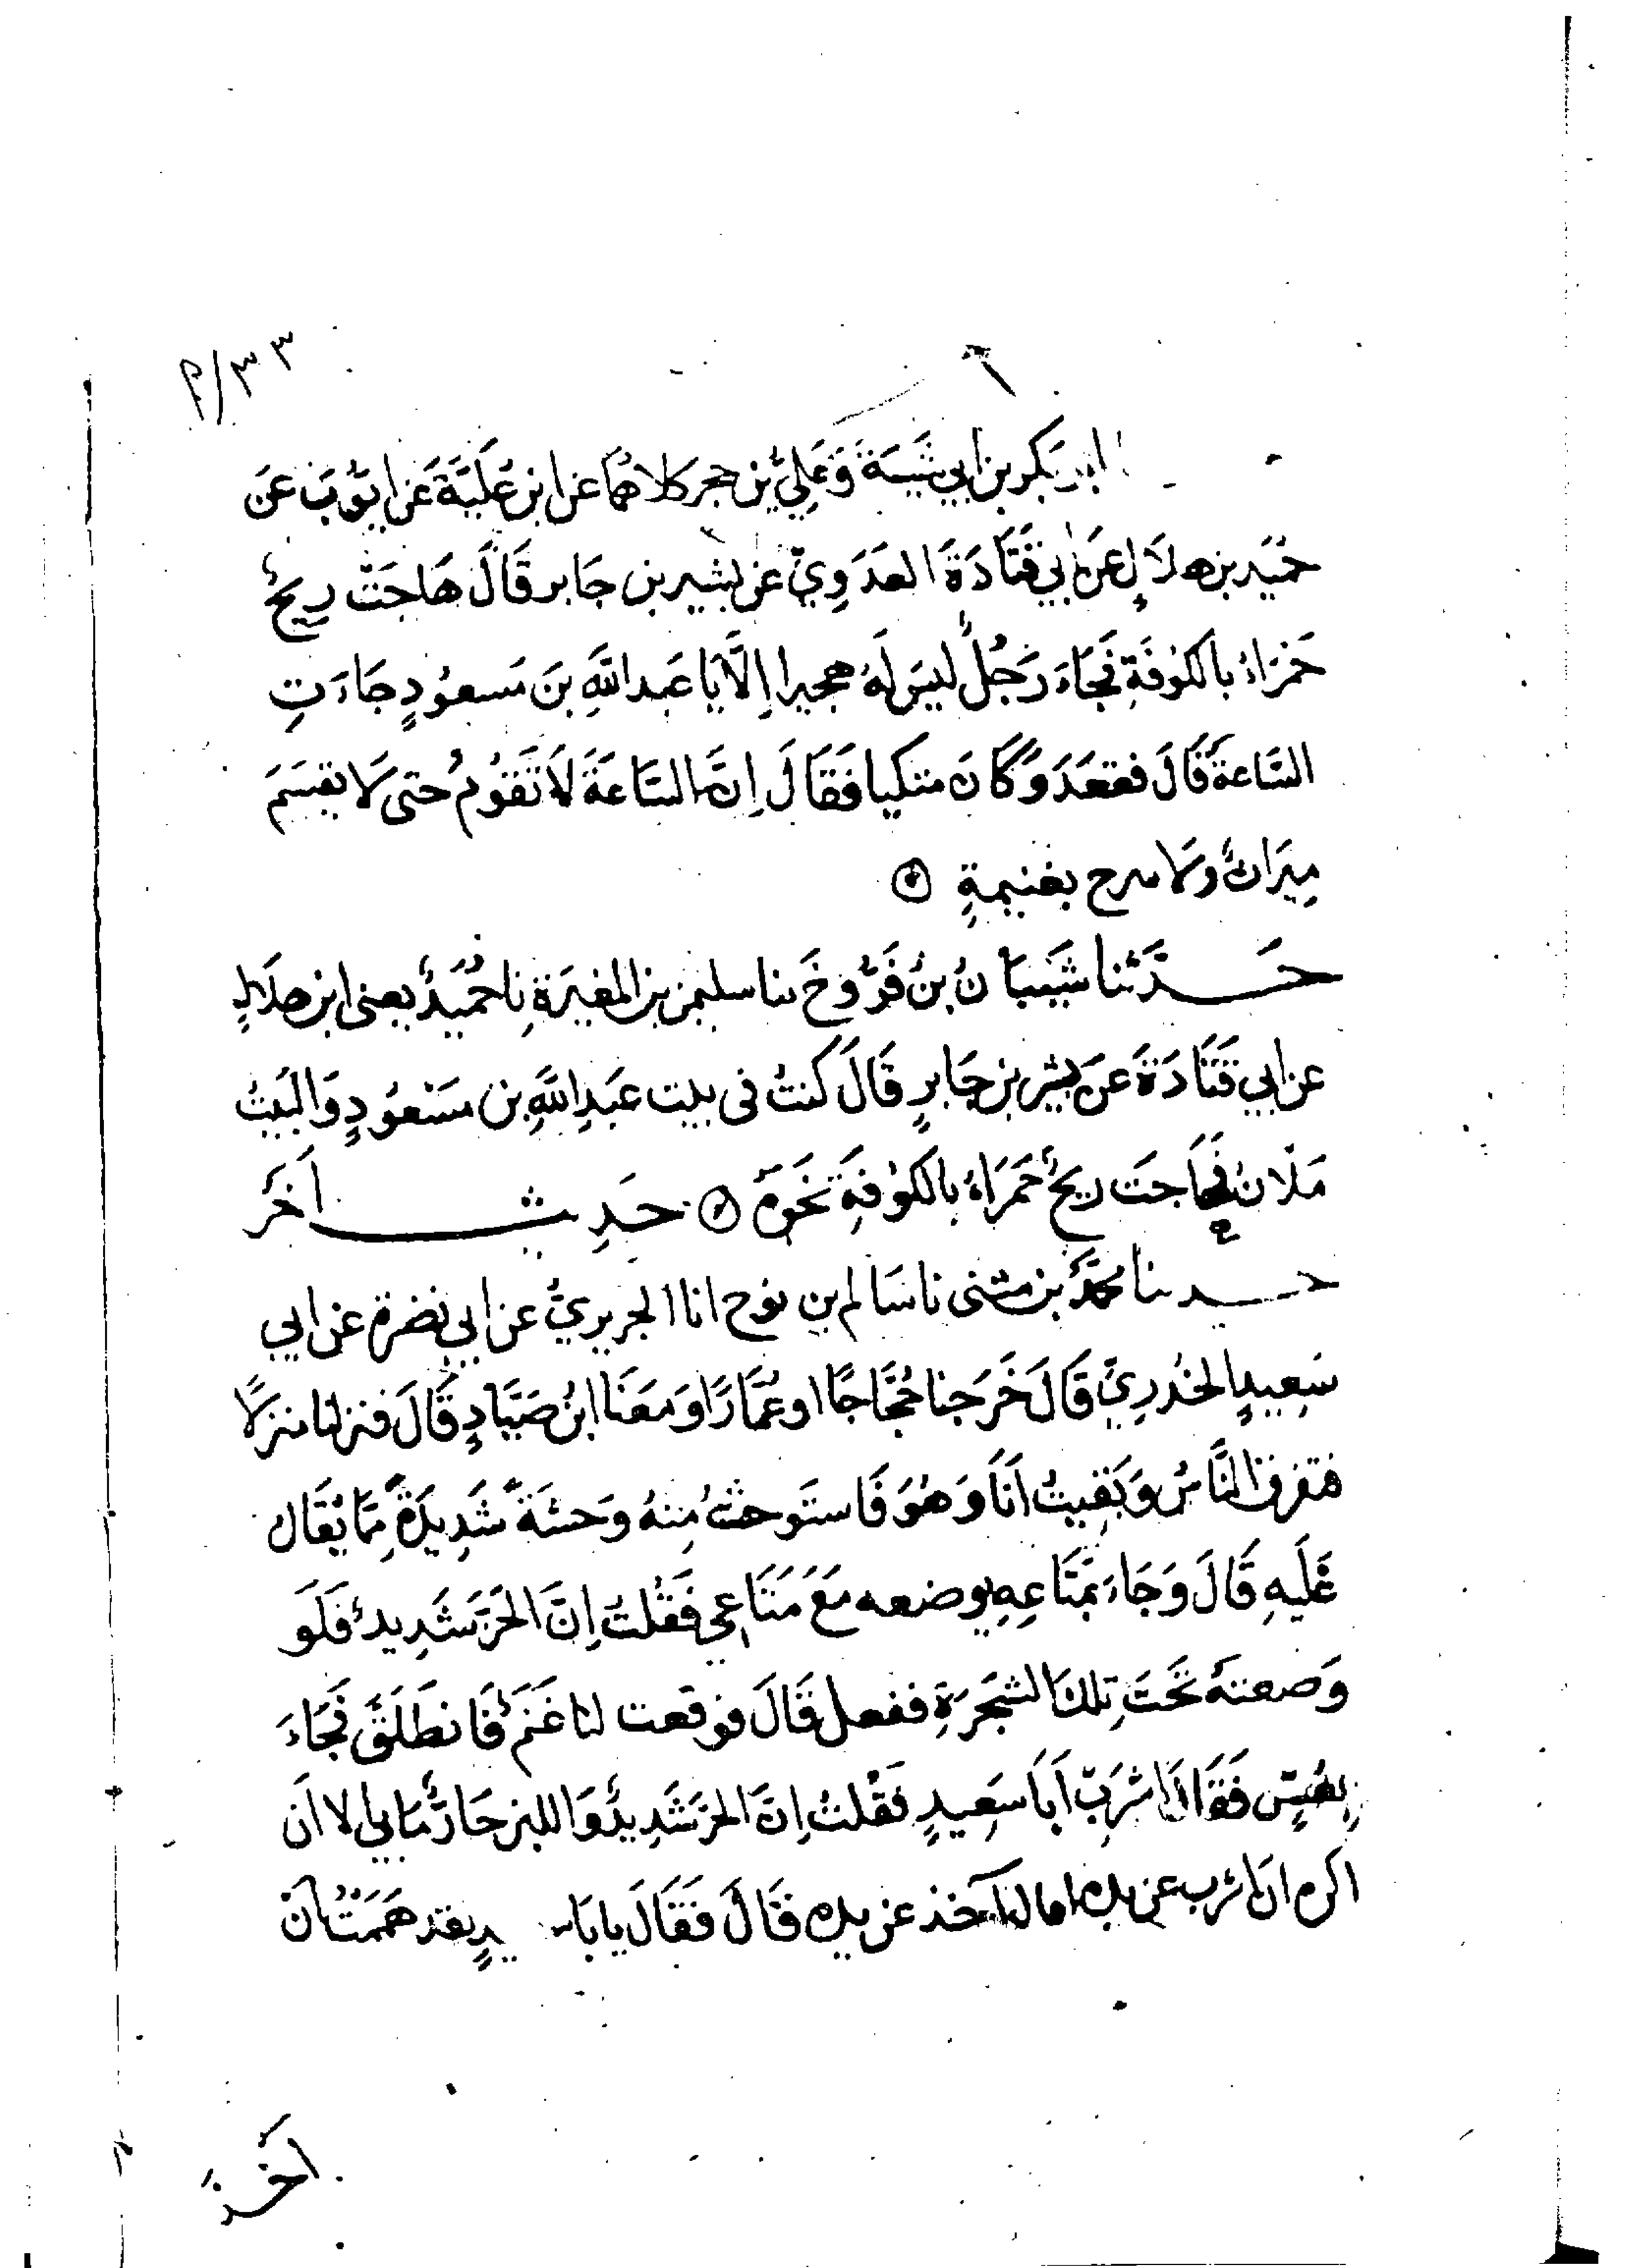 ٣٣/م
ابو بكر بن ابي شَيبَةَ وَعَلِيُّ بن حجر كلاهُما عن ابن عُلَيَّةَ عَن ايّوُبَ عَن
حُمَيد بن هلَالٍ عَن ابي قَتَادَةَ العَدَوِيّ عن بشير بن جَابر قَالَ هَاجَتْ رِيحٌ
حَمْرَاءُ بالكوُفَةِ فَجَاءَ رَجُلٌ ليسَ لَهُ هجيرا إلَّا يَا عَبد اللَّهِ بنَ مَسعوُدٍ جَاءَتِ
السَّاعةُ قَالَ فقعَدَ وَكَانَ متكيا فَقَالَ إنَّ السَّاعَةَ لَا تَقوُمُ حتى لَا يقسَمَ
مِيرَاثٌ ولَا يفرح بغنيمةٍ
حَــدَّثنا شَيبَانُ بنُ فَرُّوخَ ثنا سليمن بن المغيرَةِ نا حُمَيدٌ يعنى ابن هلَالٍ
عن ابي قَتَادَةَ عَن يسير بن جَابرٍ قَالَ كنتُ فى بيت عَبدِ اللَّهِ بن مَسْعوُدٍ وَالبَيتُ
مَلْانُ فَهاجَت ريحٌ حَمرَاءُ بالكوُفَةِ نحَوهُ حَدِيثــــ اخَر
حــدثنا محمَّدُ بن مثنى نا سَالم بن نوح انا الجريريُّ عن ابي نضرة عن ابي
سَعِيدٍ الخُدرِيّ قَالَ خَرَجنا حُجَّاجًا او عُمَّارًا وَمعَنَا ابنُ صَيَّادٍ قَالَ فنزلنا منزلًا
فتفرق النَّاسُ وَبَقِيتُ اَنَا وَهُوَ فَاستَوحشتُ مِنهُ وَحشَةً شَدِيدَةً مِمَّا يُقَال
عَلَيهِ قَالَ وَجَاءَ بمَتَاعِهِ يوضعه مَعَ مَتَاعِي فَقُلتُ اِنَّ الحَرَّ شَدِيدٌ فَلَو
وَضعتَهُ تَحَتَ تِلكَ الشجَرَةِ ففعل قَالَ فوقعت لنا غَنَمٌ فَانطَلَقَ فَجَاءَ
بِعُسٍّ فَقَالَ اشرَبْ اَبَا سَعِيدٍ فَقُلتُ اِنَّ الحرَّ شَدِيدٌ وَاللبن حَارٌّ مَا بي الا اَن
اكره اَن اشرب عن يده او قال آخذ عن يده قَالَ فَقَالَ يابا يدٍ لقد هَمَمَتُ اَنْ
اخَذ